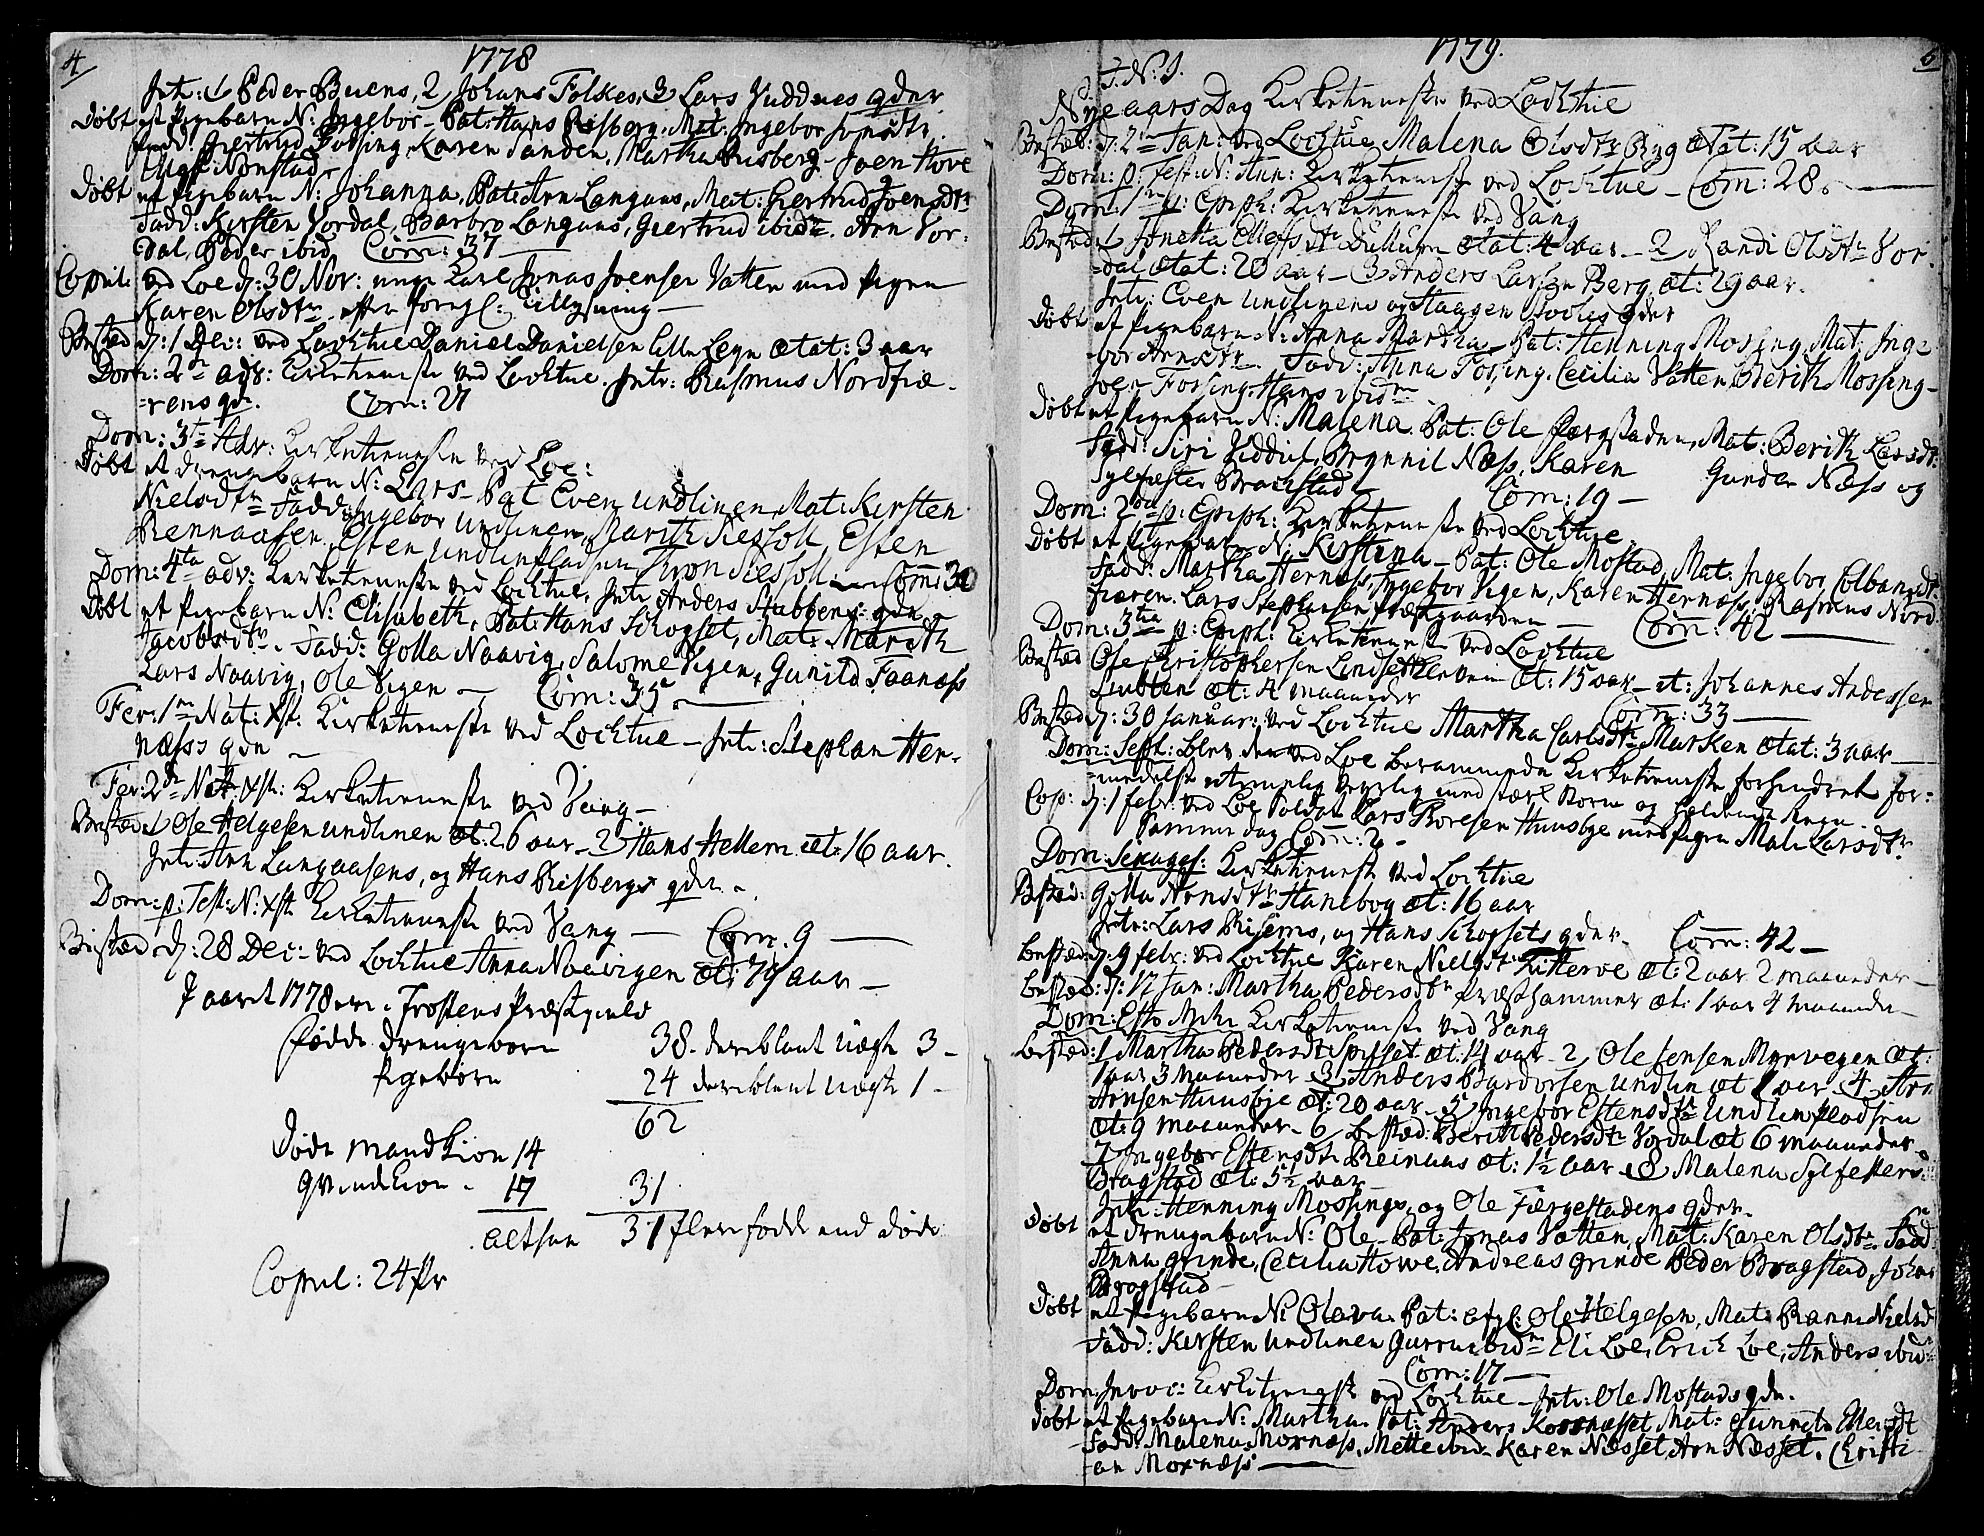 4
1778
Intr: 1 Peder Buens, 2 Johans Folkes, 3 Lars Juddnes qder
Døbt et Pigebarn N: Ingebor - Pat: Hans Risberg. Mat: Ingebor
Fadd: Giertrud Fossing, Karen Sanden, Martha Risberg - Joen Hove
Nonstad
Døbt et Pigebarn N: Johanna, Pat: Arn Langaas, Mat: Giertrud Joensdtr
Fadd: Kirsten Vordal, Barbro Langaas, Giertrud ibid. Arn Vor-
dal, Peder ibid Com: 37
Copul: ved Loe d: 30 Nov: unge Karl Jonas Joensen Vatten med Pigen
Karen Olsdtr efter foregl: Tillysning -
Bested d: 1 Dec: ved Lochtue Daniel Danielsen Lille Legn ætat: 3 aar
Dom: 2 adv: Kirketieneste ved Lochtue. Intr: Rasmus Nordfiæ-
rens qde. Com: 21
Dom: 3 Adv: Kirketieneste ved Loe:
Døbt et drengebarn N: Lars - Pat Even Undlinen Mat: Kirsten
Nielsdtr Fadd: Ingebor Undlinen, Marith Siessoll, Esten
Rennaasen, Esten Undlinpladsen Siessoll Com: 30
Dom: 4ta adv: Kirketieneste ved Lochtue, Intr Anders Stubbens qde
Døbt et Pigebarn N: Elisabeth, Pat: Hans Schogset, Mat: Marith
Jacobsdtr. Fadd: Golla Naavig, Salome Vigen, Gunild Faanæss
Lars Naavig, Ole Vigen - Com: 35
Fer: 1 Nat: Xsti: Kirketieneste ved Lochtue - Intr: Stephan Her-
næsss qde
Fer: 2 Nat: Xsti: Kirketieneste ved Vang -
Bested 1 Ole Helgesen Undlinen æt: 26 aar - 2 Hans Hellem æt: 16 aar.
Intr: Arn Langaasens, og Hans Risbergs qder -
Dom: p: Fest: N: Xsti Kirketieneste ved Vang - Com. 9
Bested d: 28 Dec: ved Lochtue Anna Naavigen æt: 79 aar -
I aaret 1778 ere i Frostens Præstegield
fødde Drengebørn 38. deriblant uægte 3 -
Pigebørn 24 deriblant uægte 1 -
62
Døde Mandkiøn 14
Qvindekiøn 17 31
altsaa 31 flere fødde end døde
Copul: 24 Par
1779.
6
J. N. J.
Nye aars Dag Kirketieneste ved Lochtue
Bested: d: 2 Jan: ved Lochtue Malena Olsdtr Byg ætat: 15 aar
Dom: p: Fest: N: Ann: Kirketieneste ved Lochtue - Com: 28.
Dom: 1 p: Epiph: Kirketieneste ved Vang
Bested 1 Jonetta Ellefsdtr ætat: 4 aar - 2 Randi Olsdtr Vor-
dal ætat: 20 aar - 3 Anders Larsen Berg æt: 29 aar.
Intr: Even Undlinens og Haagen qder
Døbt et Pigebarn N: Anna Martha Pat: Henning Mossing, Mat: Inge-
bor Arnsdtr Fadd: Anna Fossing, Cecilia Vatten, Berith Mossing -
Joen Fossing, Hans ibid
Døbt et Pigebarn N: Malena. Pat: Ole Færgstaden, Mat: Berith Larsdtr:
Fadd: Siri Viddul, Brynnil Næss, Karen Gunder Næss og
Sylfester Brachstad - Com: 19 -
Dom: 2 p: Epiph: Kirketieneste ved Lochtue.
Døbt et Pigebarn N: Kirstina - Pat: Ole Mostad, Mat: Ingebor Colbansdtr
Fadd: Martha Hernæss, Ingebor Vigen, Karen Hernæss, Rasmus Nord
fiæren. Lars Stephansen Præstgaarden - Com: 42
Dom: 3tia p: Epiph: Kirketieneste ved Lochtue
Bested Ole Christophersen æt: 15 aar - it: Johannes Andersen
Stubban æt: 4 maaneder Com: 33
Bested d: 30 Januar: ved Lochtue Martha Carlsdtr Marken ætat: 3 aar
Dom: Sept: blev den ved Loe berammede Kirketieneste forhindret for:
medelst utrolig Veyrlig med stærk Storm og heldende Regn.
Cop: d: 1 Febr: ved Loe Soldat Lars Thoresen Huusbye med Pigen Mali Larsdtr
samme dag Com: 2 -
Dom: Sexages: Kirketieneste ved Lochtue
Bested: Golla Arnsdtr Hanebog æt: 16 aar
Intr: Lars Risems, og Hans Schogsets qder - Com: 42 -
Bested d: 9 febr: ved Lochtue Karen Nielsdtr Kilterve æt: 2 aar 2 maaneder
Bested: d: 12 Jan: Martha Pedersdtr Præsthammer æt: 1 aar 4 maaneder
Dom: Esto Mihi Kirketieneste ved Vang
Bested: 1 Martha Pedersdtr Spisset æt: 14 aar - 2 Ole Jensen Myrvegen æt:
1 aar 3 maaneder 3 Anders Bardorsen Undlin æt 1 aar 4 Arn
Arnsen Huusbye æt: 20 aar - 5 Ingebor Estensdtr Undlinpladsen
æt: 9 maaneder - 6 Bested: Berith Pedersdtr Vordal æt 6 maaneder
7 Ingebor Estensdtr Reinaas æt: 1½ aar 8 Malena Sylfesters
Bragstad æt: 5½ aar
Intr: Henning Mossings, og Ole Færgestadens qder.
Døbt et drengebarn N: Ole. Pat: Jonas Vatten, Mat: Karen Olsdtr Fadd
Anna Grinde, Cecilia Howe, Andreas Grinde Peder Bragstad, Johan
Bragstad -
Døbt et Pigebarn N: Olava. Pat: afgl: Ole Helgesen, Mat: Rann Nielsd
Fadd: Kirsten Undlinen Gurru ibid Eli Loe, Erich Loe, Anders ibid
Com: 17
Dom: Invoc: Kirketieneste ved Lochtue - Intr: Ole Mostads qde.
Døbt et Pigebarn N: Martha. Pat: Anders Kosnæsset Mat: Gunnela Ellefsdt
Fadd: Malena Moxnæss, Mette ibid Karen Næsset, Arn Næsset. Christi-
an Moxnæss